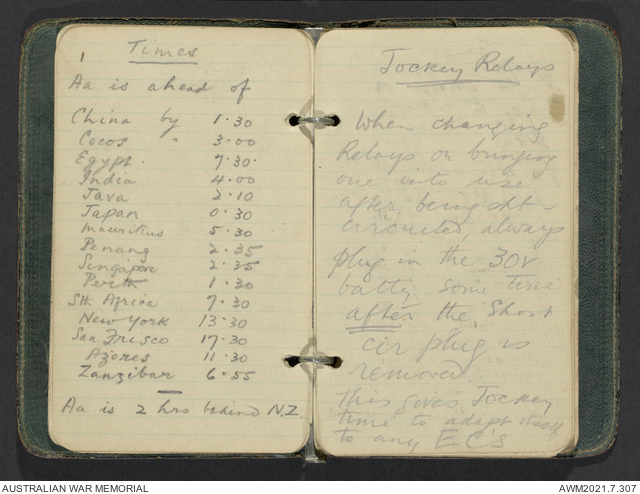 1
Times
Aa is ahead of
China by 1.30
Cocos " 3.00
Egypt. 7.30.
India 4.00
Java 2.10
Japan 0.30
Mauritius 5.30
Penang 2.35
Singapore 2.35
Perth 1.30
Sth Africa 7.30
New York 13.30
San Frisco 17.30
Azores 11.30
Zanzibar 6.55
Aa is 2 hrs behind N.Z.
Jockey Relays
When changing
Relays or bringing
one into use
after being sht-
circuited, always
plug in the 30v
batty some time
after the Short
cir plug is
removed.
This gives Jockey
time to adapt itself
to any EC's
AUSTRALIAN WAR MEMORIAL
AWM2021.7.307